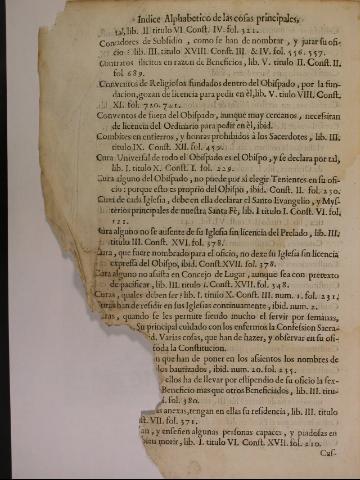 Indice Alphabetico de las cosas principales,
tal, lib. II. titulo VI. Const. IV. fol. 321.
Contadores de Subsidio, como se han de nombrar, y jurar su ofi-
cio: lib. III. titulo XVIII. Const. III. & IV. fol. 556. 557.
Contratos ilicitos en razon de Beneficios, lib. V. titulo II. Const. II.
fol. 689.
Conventos de Religiosos fundados dentro del Obispado, por la fun-
dacion, gozan de licencia para pedir en èl, lib. V. titulo VIII. Const.
XI. fol. 720. 721.
Conventos de fuera del Obispado, aunque muy cercanos, necesitan
de licencia del Ordinario para pedir en èl, ibid.
Combites en entierros, y honras prohibidos à los Sacerdotes, lib. III.
titulo IX. Const. XII. fol. 459.
Cura Universal de todo el Obispado es el Obispo, y se declara por tal,
lib. I. titulo X. Const. I. fol. 229.
Cura alguno del Obispado, no puede por sì elegir Tenientes en su ofi-
cio: porque esto es proprio del Obispo, ibid. Const. II. fol. 230.
Cura de cada Iglesia, debe en ella declarar el Santo Evangelio, y Mys-
terios principales de nuestra Santa Fè, lib. I. titulo I. Const. VI. fol.
122.
Cura alguno no se ausente de su Iglesia sin licencia del Prelado, lib. III.
titulo III. Const. XVI. fol. 378.
Cura, que fuere nombrado para el oficio, no dexe su Iglesia sin licencia
expressa del Obispo, ibid. Const. XVII. fol. 378.
Cura alguno no assista en Concejo de Lugar, aunque sea con pretexto
de pacificar, lib. III. titulo I. Const. XVII. fol. 348.
Curas, quales deben ser: lib. I. titulo X. Const. III. num. 1. fol. 231.
Curas han de residir en sus Iglesias continuamente, ibid. num. 2.
ras, quando se les permite siendo mucho el servir por semanas,
Su principal cuidado con los enfermos la Confession Sacra-
d. Varias cosas, que han de hazer, y observar en su ofi-
toda la Constitucion.
n que han de poner en los assientos los nombres de
los bautizados, ibid. num. 20. fol. 235.
ellos ha de llevar por estipendio de su oficio la sex-
Beneficio mas que otros Beneficiados, lib. III. titu-
I. fol. 380.
as anexas, tengan en ellas su residencia, lib. III. titulo
t. VII. fol. 371.
an, y enseñen algunas personas capaces, y piadosas en
bien morir, lib. I. titulo VI. Const. XVII. fol. 210.
Cus-